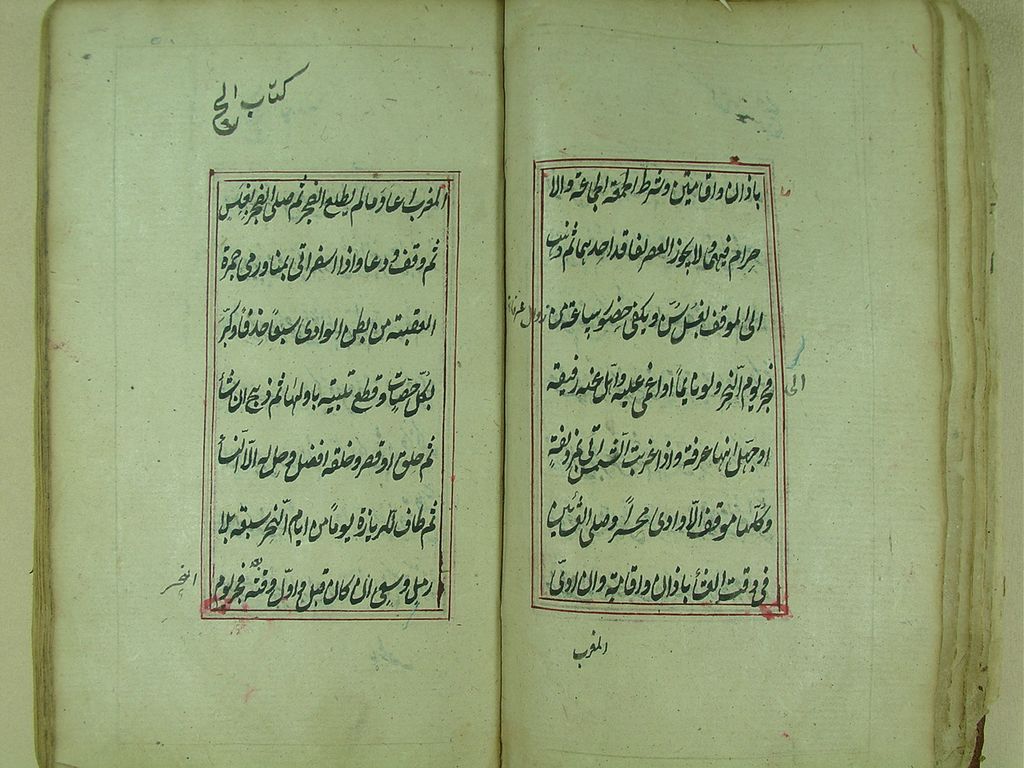 باذان واقامتين وشرط الجماعة والا
حرام فيهما ولا يجوز العصر لفاقد احدهما ثم ذهب
الى الموقف بغسل سن ويكفى حضور ساعة من زوال عرفة
الى
فجر يوم النحر ولو نايماً او اغمى عليه واهل عنه رفيقه
او جهل انها عرفة واذا غربت الشمس اتى مزدلفة
وكلها موقف الا وادى محسر وصلى العشائين
فى وقت العشأ باذان واقامة وان ادى
المغرب
كتاب الحج
المغرب اعاد ما لم يطلع الفجر ثم صلى الفجر بغلس
ثم وقف ودعا واذا اسفر اتى بمنا ورمى جمرة
العقبة من بطن الوادى سبعاً خذفاً وكبر
بكل حصاة وقطع تلبيته باولها ثم ذبح ان شأ
ثم حلق او قصر وحلقه افضل وحل له الا النسأ
ثم طاف للزيارة يوماً من ايام النحر سبعة بلا
رمل وسعى ان كان قبل واول وقته فجر يوم
النحر